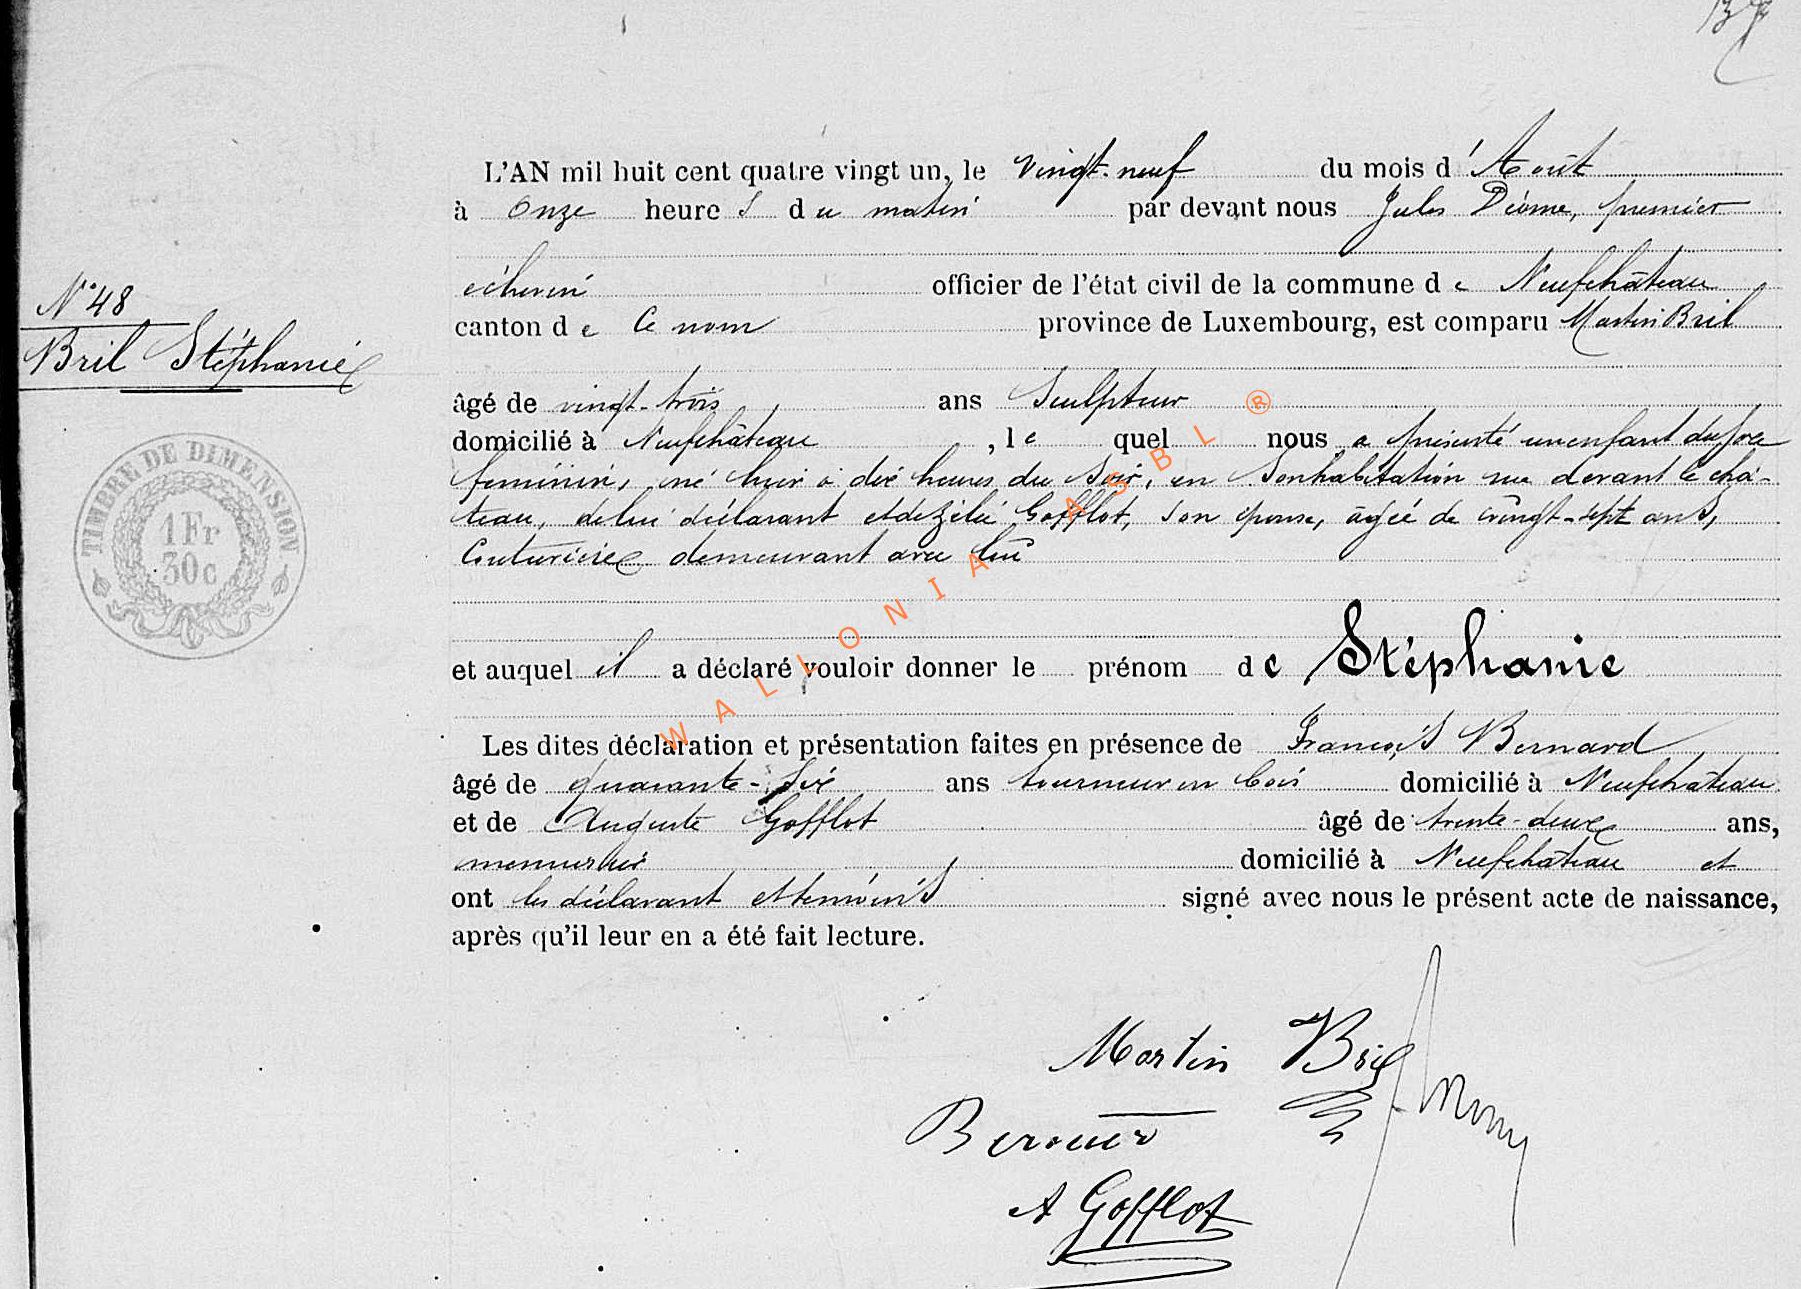 37
L'AN mil huit cent quatre vingt un, le vingt-neuf du mois d'Août
à Onze heures du matin par devant nous Jules Déome, premier
échevin officier de l'état civil de la commune de Neufchâteau
N° 48
canton de Ce nom province de Luxembourg, est comparu Martin Bril
Bril Stéphanie
âgé de vingt-trois ans Sculpteur
domicilié à Neufchâteau, le quel nous a présenté un enfant du sexe
féminin, né hier à dix heures du Soir, en Son habitation rue devant le châ-
teau, de lui déclarant et de Zélie Gofflot, Son épouse, âgée de vingt-sept ans,
Couturière demeurant avec lui
TIMBRE DE DIMENSION
1 Fr
30 c
et auquel il a déclaré vouloir donner le prénom de Stéphanie
Les dites déclaration et présentation faites en présence de François Bernard
âgé de quarante-Six ans tourneur en bois domicilié à Neufchâteau
et de Auguste Gofflot âgé de trente-deux ans,
menuisier domicilié à Neufchâteau et
ont les déclarant et témoins signé avec nous le présent acte de naissance,
après qu'il leur en a été fait lecture.
Martin Bril
A Gofflot
WALLONIA ASBL ®